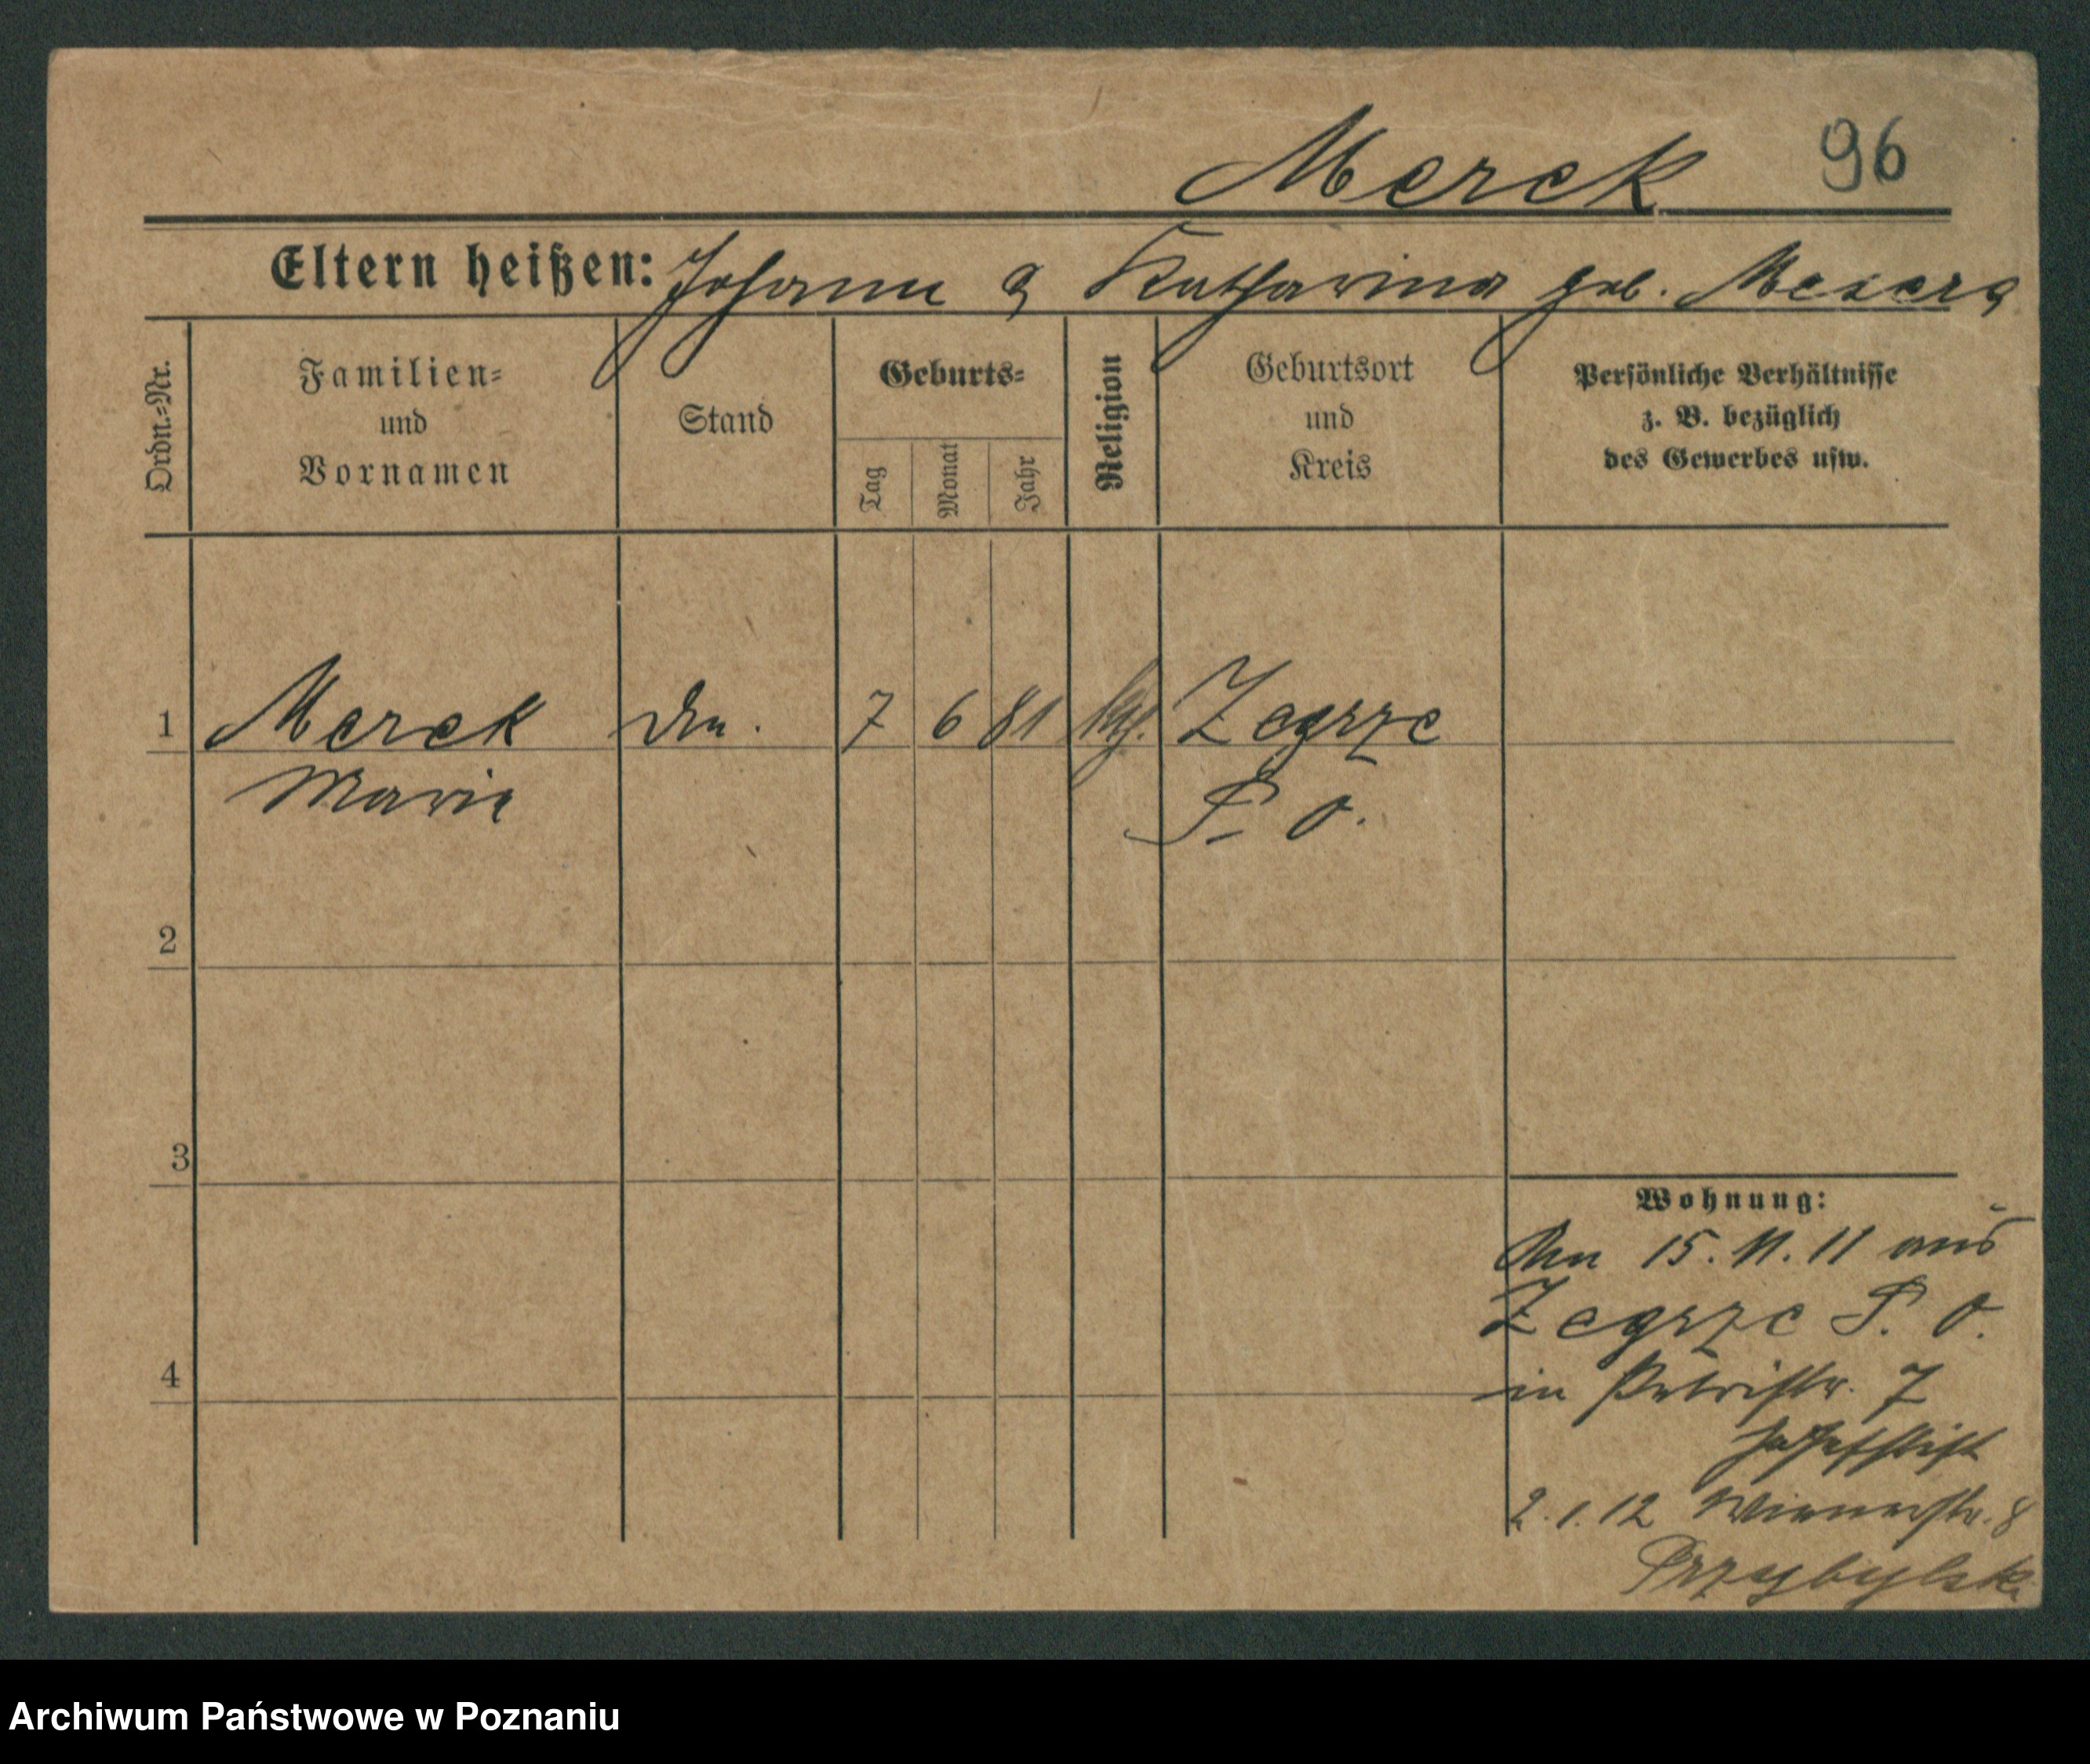 Merck 96
Eltern heißen: Johann & Katharina geb.
Ordn.=Nr.
Familien=
und
Vornamen
Stand
Geburts=
Tag
Monat
Jahr
Religion
Geburtsort
und
Kreis
Persönliche Verhältnisse
z. B. bezüglich
des Gewerbes usw.
1 Merck 7 6 81 kth. Zegrze
Marie P. O.
2
3
Wohnung:
15. 11. 11 aus
Zegrze P. O.
4
in Petristr. 7
Josefstift
2. 1. 12 Wienerstr. 8
Przybylski
Archiwum Państwowe w Poznaniu